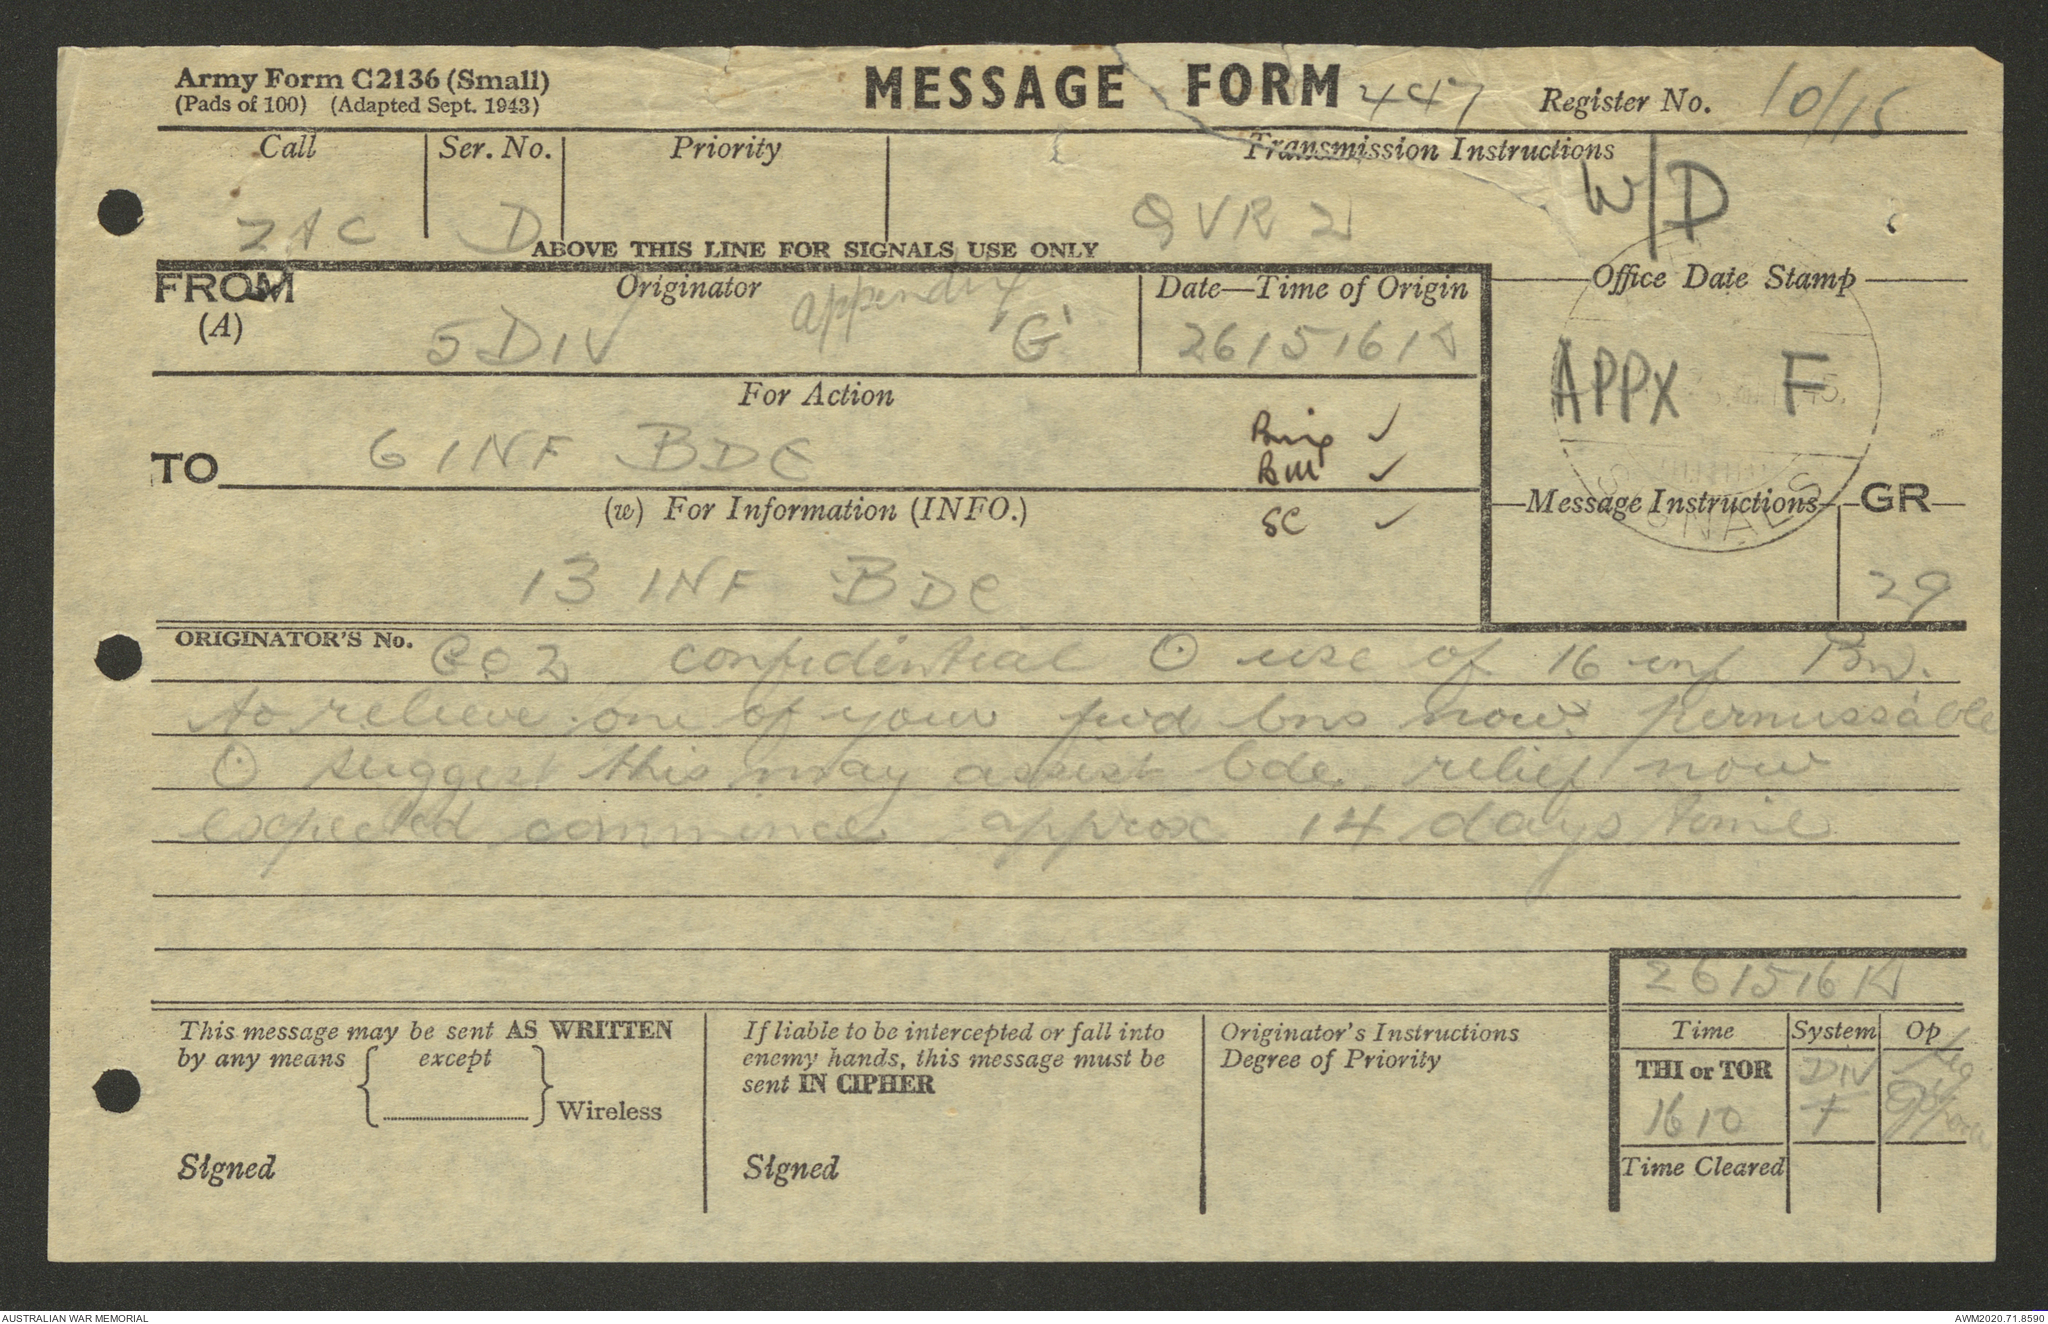 Army Form C2136 (Small)
(Pads of 100) (Adapted Sept. 1943)
MESSAGE FORM 447
Register No. 10/15
Call
Ser. No.
Priority
Transmission Instructions
W/D
ZAC
D
QVR 2
ABOVE THIS LINE FOR SIGNALS USE ONLY
FROM
(A)
Originator
appendix
'G'
5 DIV
Date—Time of Origin
261516K
Office Date Stamp
APPX F
SIGNALS
For Action
TO
6 INF BDE
Brig ✓
BM ✓
SC ✓
(w) For Information (INFO.)
13 INF BDE
Message Instructions
GR
29
ORIGINATOR'S No. G02 confidential O use of 16 inf Bn.
to relieve one of your fwd bns now permissable
O suggest this may assist bde relief now
expected commence approx 14 days time
261516K
This message may be sent AS WRITTEN
by any means except
Wireless
Signed
If liable to be intercepted or fall into
enemy hands, this message must be
sent IN CIPHER
Signed
Originator's Instructions
Degree of Priority
Time
System
Op
THI or TOR
DIV
1610
Time Cleared
AUSTRALIAN WAR MEMORIAL
AWM2020.71.8590